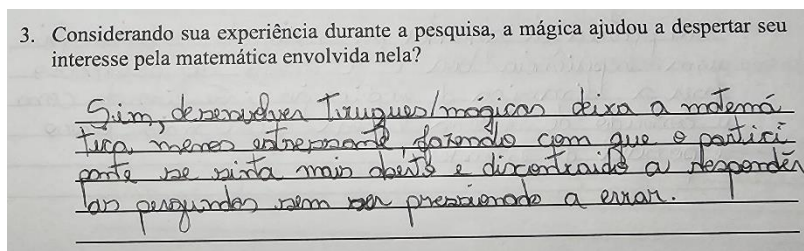 3. Considerando sua experiência durante a pesquisa, a mágica ajudou a despertar seu
interesse pela matemática envolvida nela?
Sim, desenvolver truques/mágicas deixa a matemá
tica, menos estressante, fazendo com que o partici
pante se sinta mais aberto e discontraido a responder
as perguntas sem ser pressionado a errar.